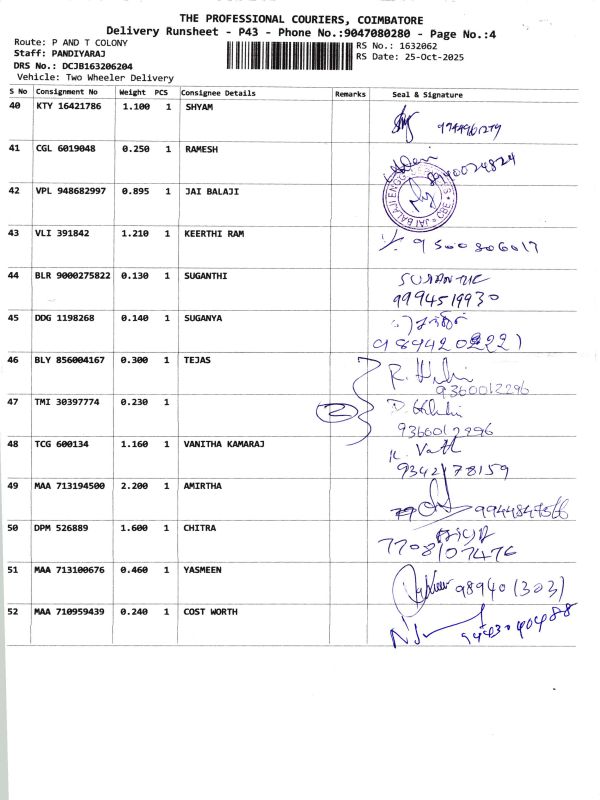 THE PROFESSIONAL COURIERS, COIMBATORE
Delivery Runsheet - P43 - Phone No.:9047080280 - Page No.:4
Route: P AND T COLONY
Staff: PANDIYARAJ
DRS No.: DCJB163206204
Vehicle: Two Wheeler Delivery
RS No.: 1632062
RS Date: 25-Oct-2025
S No Consignment No Weight PCS Consignee Details Remarks Seal & Signature
40 KTY 16421786 1.100 1 SHYAM
41 CGL 6019048 0.250 1 RAMESH 8940024824
42 VPL 948682997 0.895 1 JAI BALAJI
JAI BALAJI ENGG CBE
43 VLI 391842 1.210 1 KEERTHI RAM 9500806017
44 BLR 9000275822 0.130 1 SUGANTHI
9994519930
45 DDG 1198268 0.140 1 SUGANYA
46 BLY 856004167 0.300 1 TEJAS
9360012296
47 TMI 30397774 0.230 1 2
9360012296
48 TCG 600134 1.160 1 VANITHA KAMARAJ
9342178159
49 MAA 713194500 2.200 1 AMIRTHA 9944847566
50 DPM 526889 1.600 1 CHITRA
7708107476
51 MAA 713100676 0.460 1 YASMEEN 98940 (303)
52 MAA 710959439 0.240 1 COST WORTH